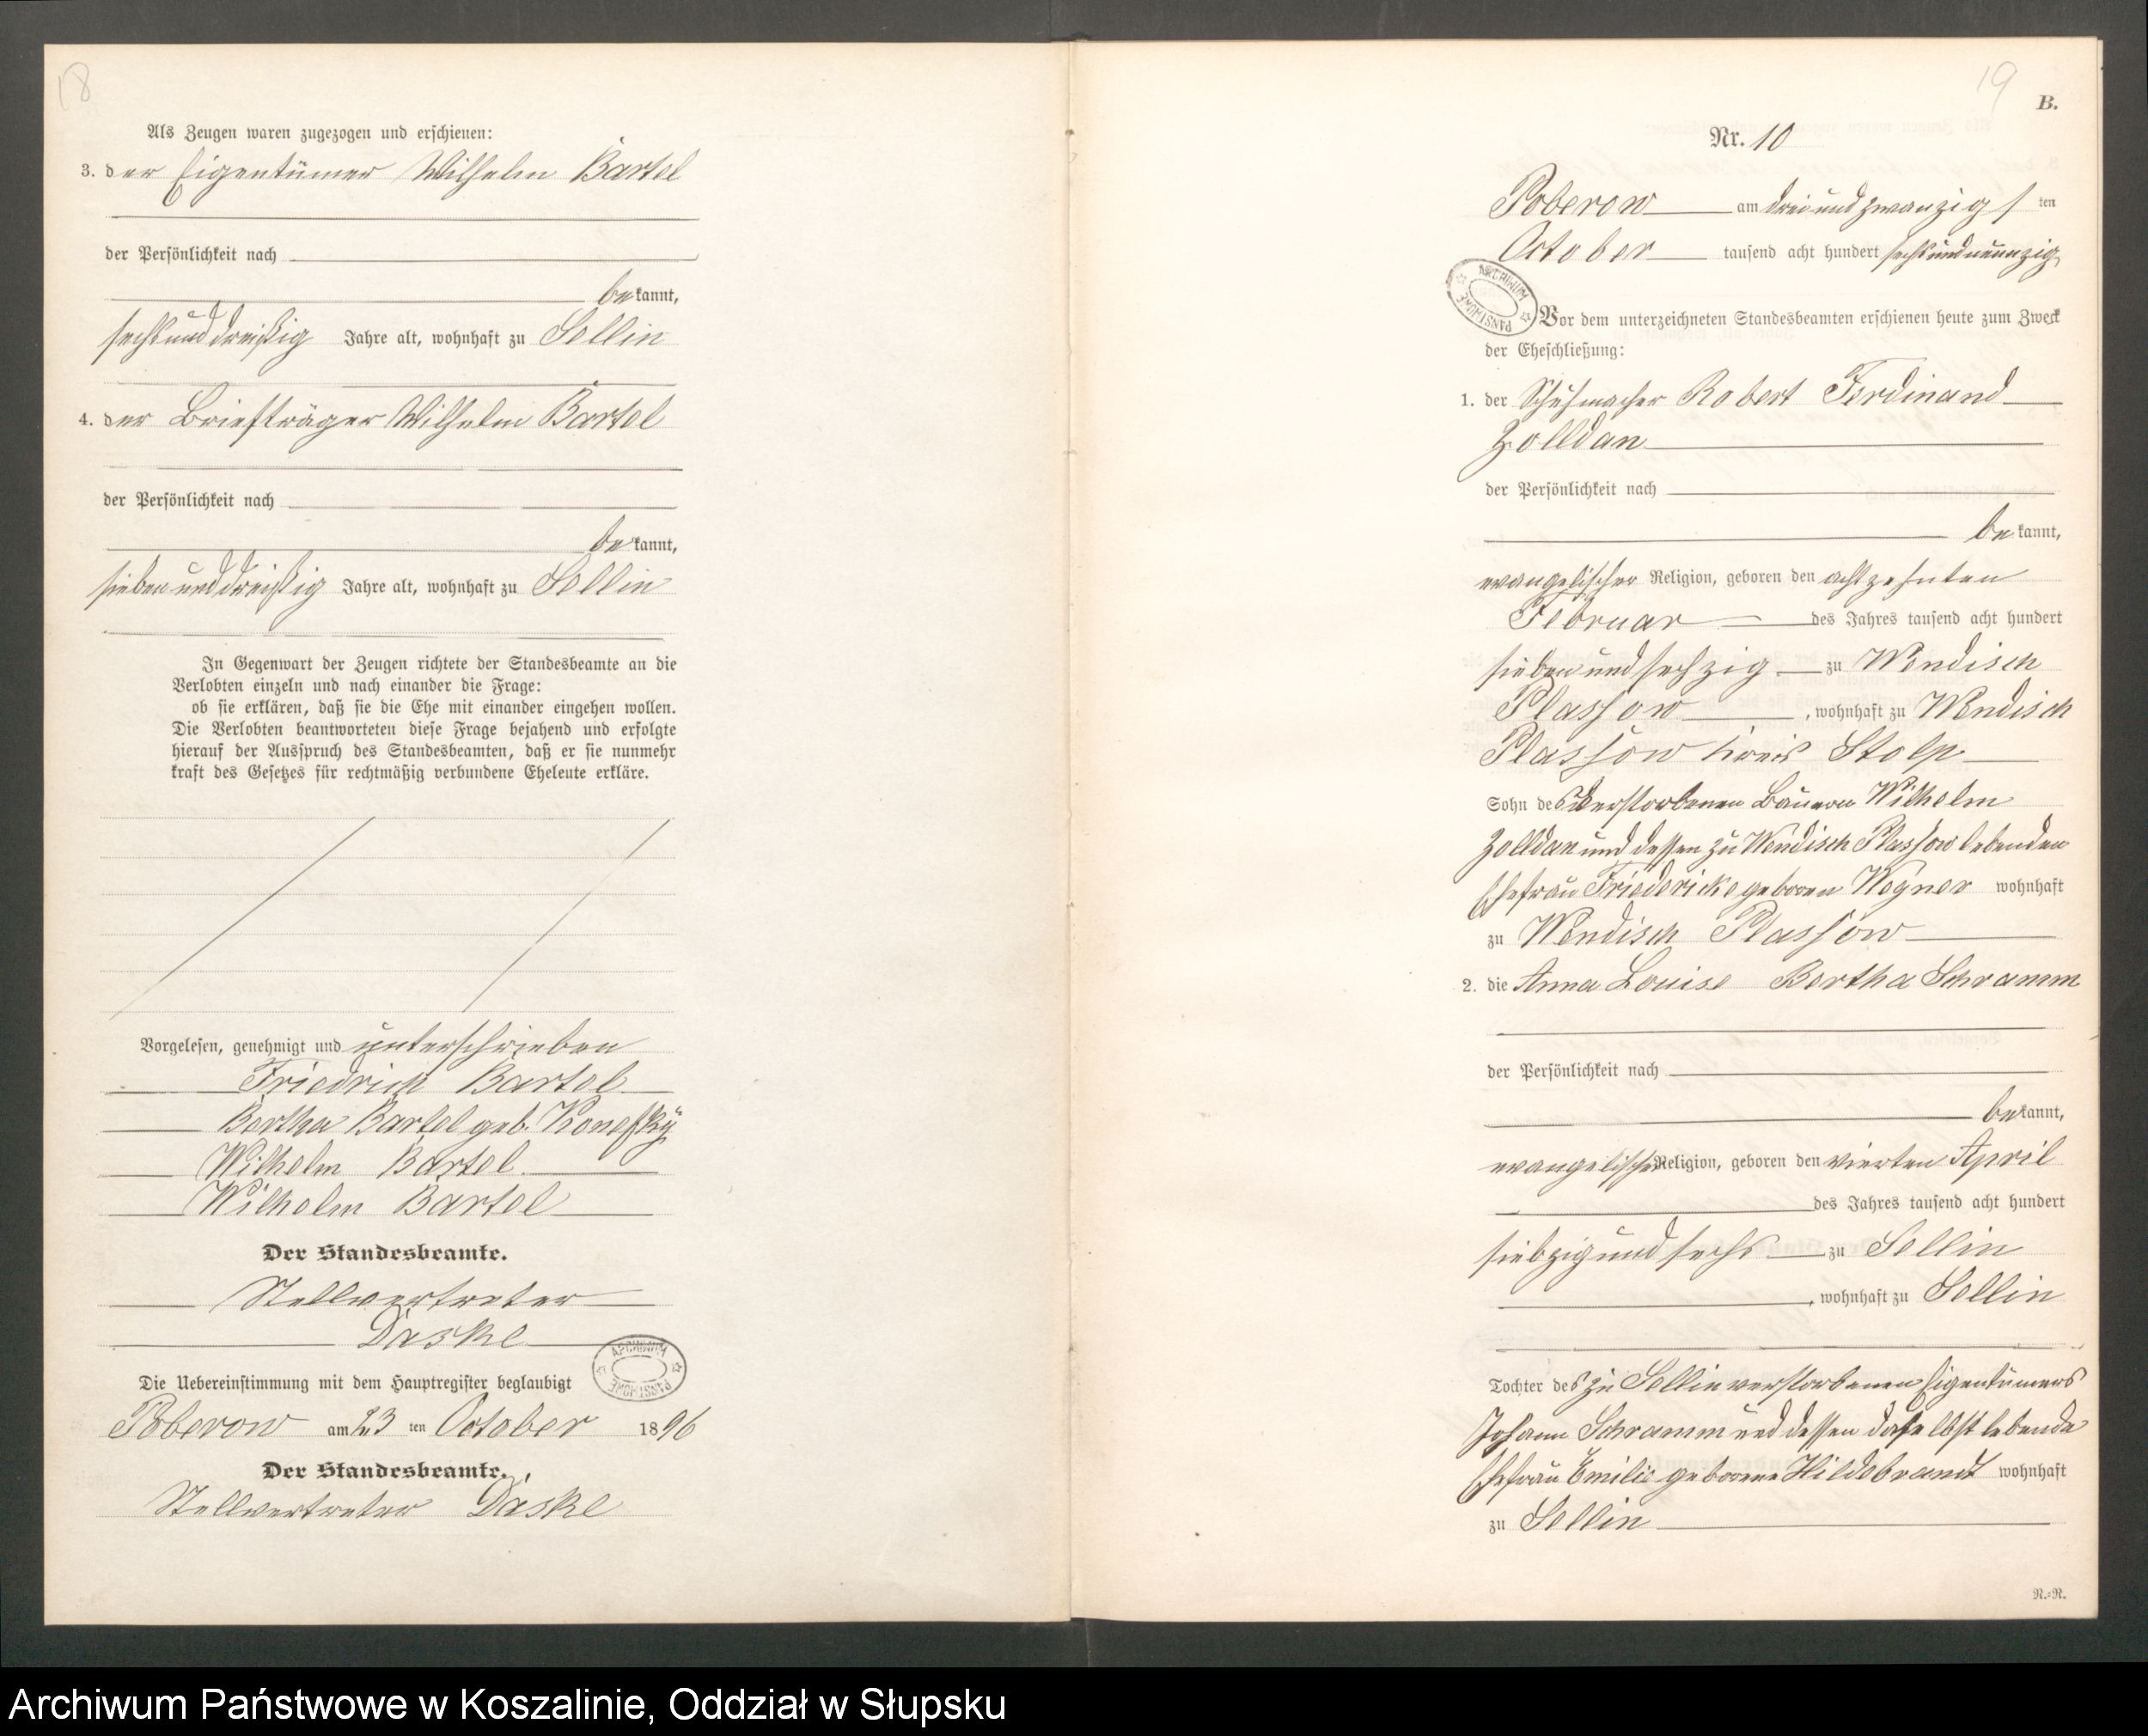 18
Als Zeugen waren zugezogen und erschienen:
3. der Eigentümer Wilhelm Bartel
der Persönlichkeit nach
bekannt,
sechsunddreißig Jahre alt, wohnhaft zu Sellin
4. der Briefträger Wilhelm Bartel
der Persönlichkeit nach
bekannt,
siebenunddreißig Jahre alt, wohnhaft zu Sellin
In Gegenwart der Zeugen richtete der Standesbeamte an die
Verlobten einzeln und nach einander die Frage:
ob sie erklären, daß sie die Ehe mit einander eingehen wollen.
Die Verlobten beantworteten diese Frage bejahend und erfolgte
hierauf der Ausspruch des Standesbeamten, daß er sie nunmehr
kraft des Gesetzes für rechtmäßig verbundene Eheleute erkläre.
Vorgelesen, genehmigt und unterschrieben
Friedrich Bartel
Bertha Bartel geb. Konefky
Wilhelm Bartel
Wilhelm Bartel
Der Standesbeamte.
Stellvertreter
Daske
ARCHIWUM PAŃSTWOWE
Die Uebereinstimmung mit dem Hauptregister beglaubigt
Poberow am 23 ten October 1896
Der Standesbeamte.
Stellvertreter Daske
19
B.
Nr. 10
Poberow am dreiundzwanzigsten
October tausend acht hundert sechsundneunzig
ARCHIWUM PAŃSTWOWE
Vor dem unterzeichneten Standesbeamten erschienen heute zum Zweck
der Eheschließung:
1. der Schuhmacher Robert Ferdinand
Zolldan
der Persönlichkeit nach
bekannt,
evangelischer Religion, geboren den achtzehnten
Februar des Jahres tausend acht hundert
siebenundsechzig zu Wendisch
Plassow, wohnhaft zu Wendisch
Plassow Kreis Stolp
Sohn des verstorbenen Bauern Wilhelm
Zolldan und dessen zu Wendisch Plassow lebenden
Ehefrau Friedericke geboren Wegner wohnhaft
zu Wendisch Plassow
2. die Anna Louise Bertha Schramm
der Persönlichkeit nach
bekannt,
evangelischer Religion, geboren den vierten April
des Jahres tausend acht hundert
siebzigundsechs zu Sellin
, wohnhaft zu Sellin
Tochter des zu Sellin verstorbenen Eigentümers
Johann Schramm und dessen daselbst lebende
Ehefrau Emilie geborene Hildebrandt wohnhaft
zu Sellin
R.-R.
Archiwum Państwowe w Koszalinie, Oddział w Słupsku